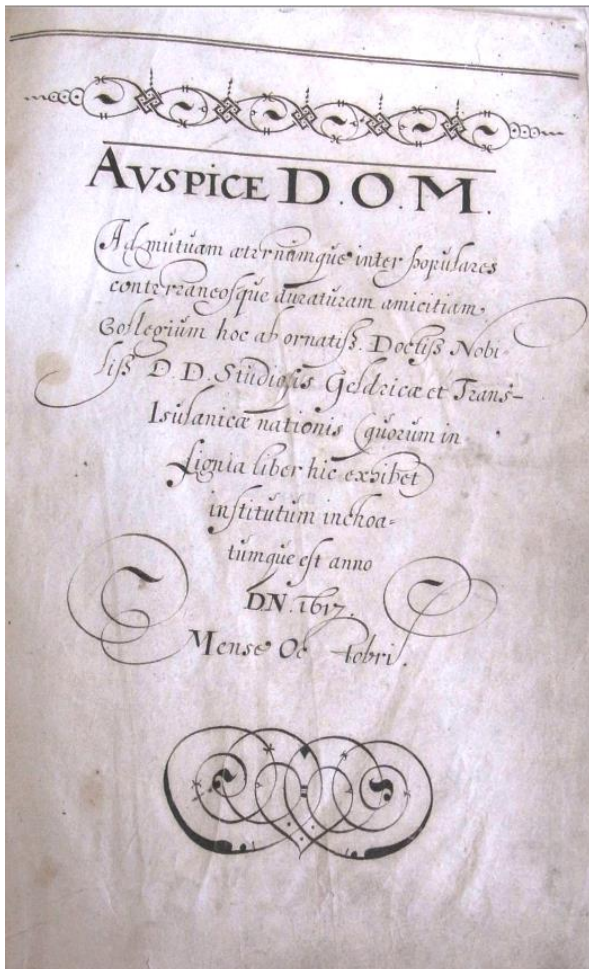 AVSPICE D.O.M.
Ad mutuam æternamque inter populares
conterraneosque duraturam amicitiam
Collegium hoc ab ornatiß. Doctiß Nobi-
liß D.D. Studiosis Geldricæ et Trans-
Isulanicæ nationis (quorum in
signia liber hic exhibet)
institutum inchoa-
tumque est anno
DN. 1617.
Mense Oc tobri.